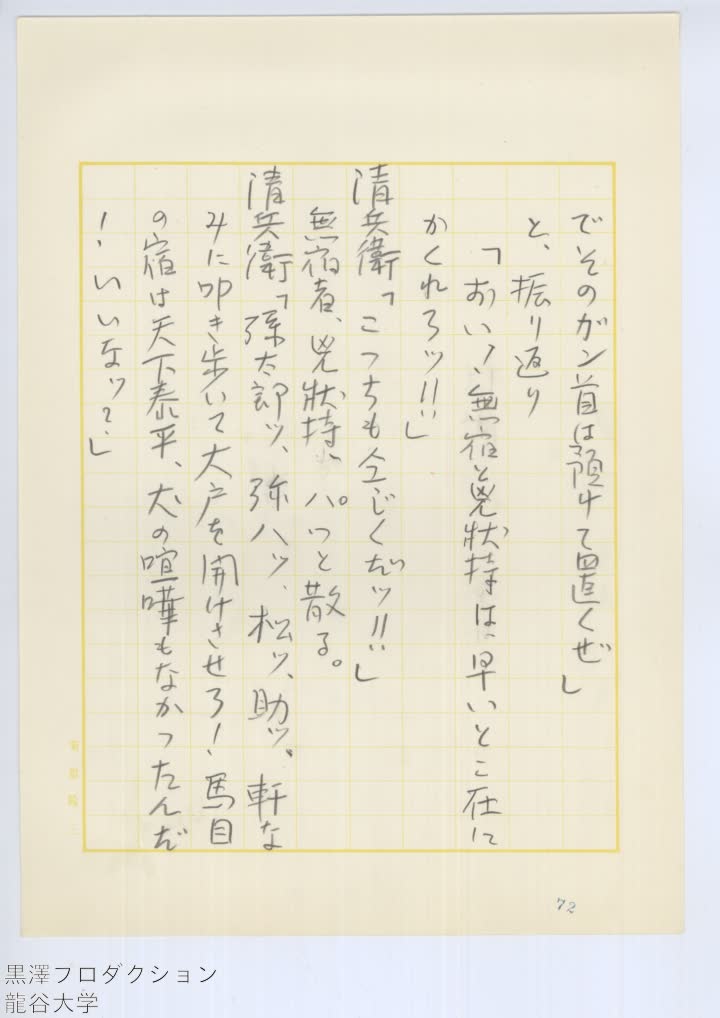 でそのガン首は預けて置くぜ」
と、振り返り
「おい！無宿と兇状持は、早いとこ在に
かくれろッ!!」
清兵衛「こっちも全じくだッ!!」
無宿者、兇状持、パッと散る。
清兵衛「孫太郎ッ、弥八ッ、松ッ、助ッ、軒な
みに叩き歩いて大戸を開けさせろ！馬目
の宿は天下泰平、犬の喧嘩もなかったんだ
！いいなッ？」
72
黒澤プロダクション
龍谷大学